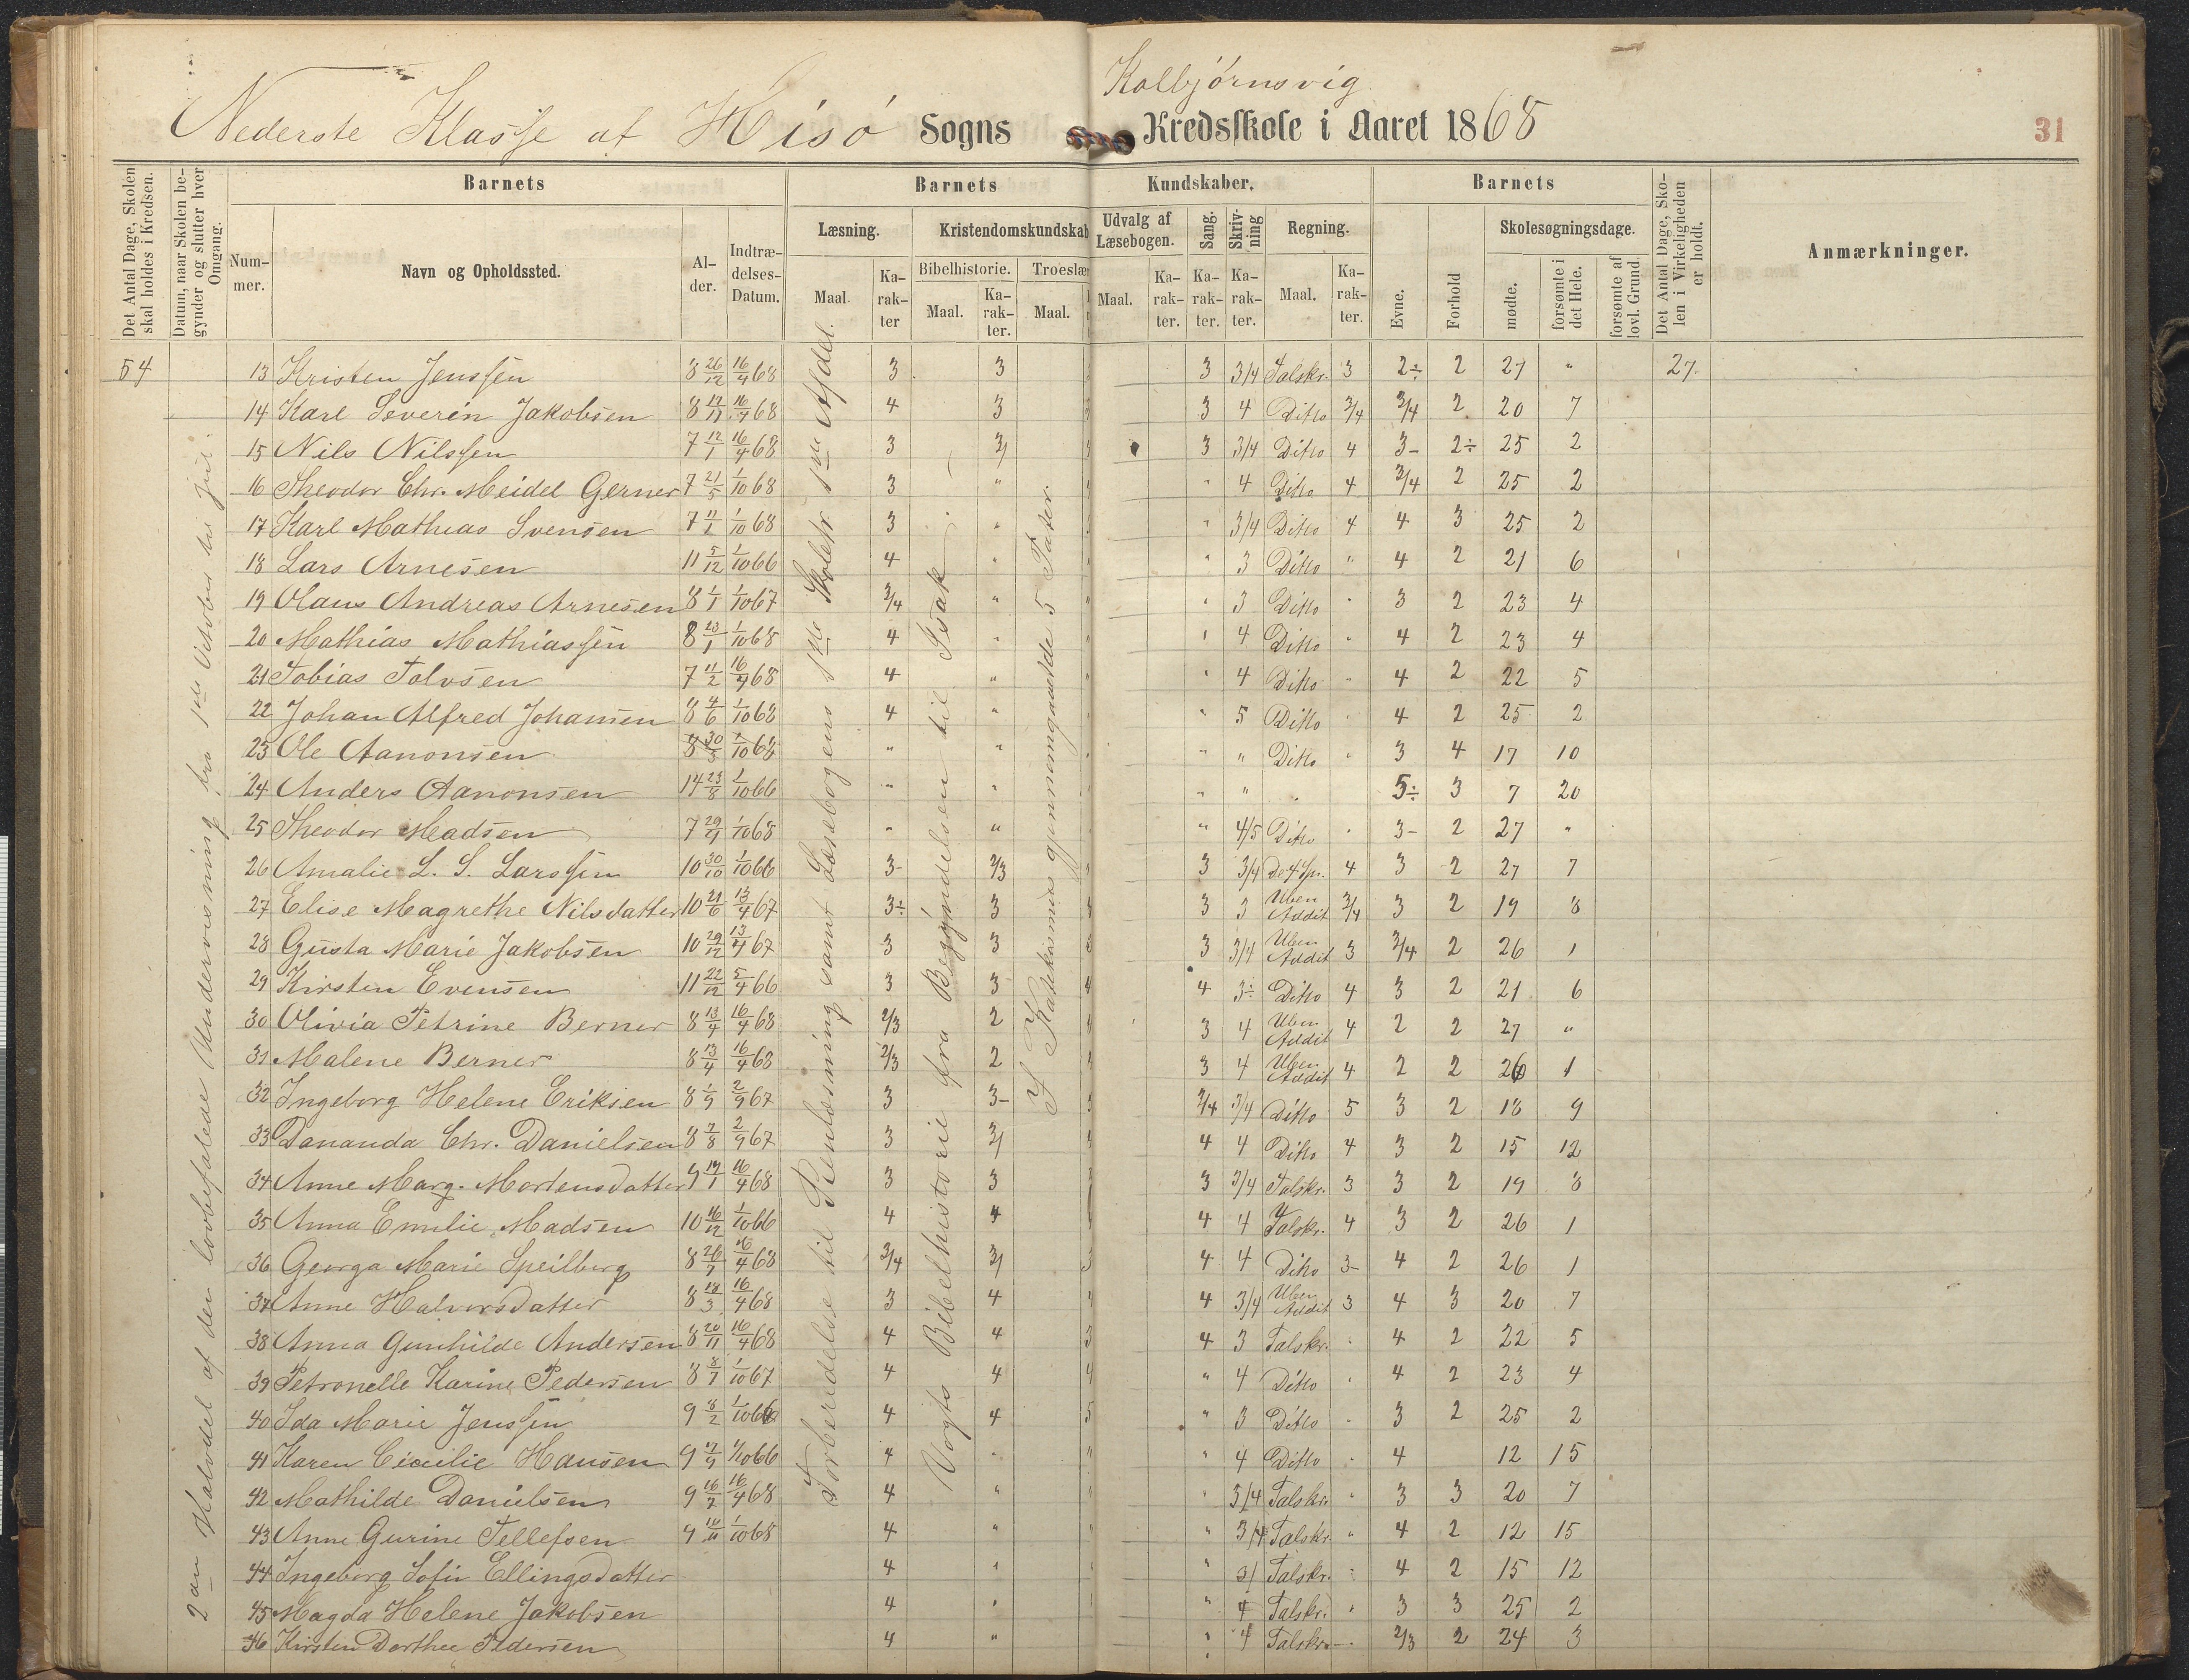 Kolbjórnsvig
Nederste Klasse af Hisó Sogns Kredsskole i Aaret 1868
31
Det Antal Dage, Skolen skal holdes i Kredsen.
Datum, naar Skolen begynder og slutter hver Omgang.
Barnets
Nummer.
Navn og Opholdssted.
Alder.
Indtrædelses-Datum.
Barnets
Læsning.
Maal.
Karakter
Kristendomskundskab
Bibelhistorie.
Maal.
Karakter.
Troeslær
Maal.
Kundskaber.
Udvalg af Læsebogen.
Maal.
Karakter.
Sang.
Karakter.
Skrivning
Karakter.
Regning.
Maal.
Karakter.
Barnets
Evne.
Forhold
Skolesøgningsdage.
mødte.
forsømte i det Hele.
forsømte af lovl. Grund.
Det Antal Dage, Skolen i Virkeligheden er holdt.
Anmærkninger.
2den Halvdel af den lovbefalede Undervisning fra 1ste Oktober til Jul.
Forberedelse til Renlæsning samt Læsebogens 1ste Skoletr. 1ste Afdel.
Vogts Bibelhistorie fra Begyndelsen til Isak
I Katekismus gjennemgaaede 5 Parter.
54 13 Kristen Jenssen 8 26/12 16/4 68 3 3 3 3/4 Talskr. 3 2÷ 2 27 " 27.
14 Karl Severin Jakobsen 8 17/11 16/4 68 4 3 3 4 Ditto 3/4 3/4 2 20 7
15 Nils Nilssen 7 12/1 16/4 68 3 3/ 3 3/4 Ditto 4 3- 2÷ 25 2
16 Theodor Chr. Meidel Gerner 7 21/5 1/10 68 3 " " 4 Ditto 4 3/4 2 25 2
17 Karl Mathias Svensen 7 11/1 1/10 68 3 " " 3/4 Ditto 4 4 3 25 2
18 Lars Arnesen 11 5/12 1/10 66 4 " " 3 Ditto " 4 2 21 6
19 Olaus Andreas Arnesen 8 1/1 1/10 67 3/4 " " 3 Ditto " 3 2 23 4
20 Mathias Mathiassen 8 23/1 1/10 68 4 " " 4 Ditto " 4 2 23 4
21 Tobias Tolvsen 7 11/2 16/4 68 4 " " 4 Ditto " 4 2 22 5
22 Johan Alfred Johansen 8 4/6 1/10 68 4 " " 5 Ditto " 4 2 25 2
23 Ole Aanonsen 8 30/3 1/10 68 " " " " Ditto " 3 4 17 10
24 Anders Aanonsen 14 23/8 1/10 66 " " " " 5÷ 3 7 20
25 Theodor Madsen 7 29/4 1/10 68 " " " 4/5 Ditto " 3- 2 27 "
26 Amalie L. S. Larssen 10 30/10 1/10 66 3- 2/3 3 3/4 De 4 Sp. 4 3 2 27 7
27 Elise Magrethe Nilsdatter 10 21/6 13/4 67 3÷ 3 3 3 Uben Addit 3/4 3 2 19 8
28 Gusta Marie Jakobsen 10 29/12 13/4 67 3 3 3 3/4 Uben Addit 3 3/4 2 26 1
29 Kirsten Evensen 11 22/12 5/4 66 3 3 4 3÷ Ditto 4 3 2 21 6
30 Olivia Petrine Berner 8 13/4 16/4 68 2/3 2 3 4 Uben Addit 4 2 2 27 "
31 Malene Berner 8 13/4 16/4 68 2/3 2 3 4 Uben Addit 4 2 2 26 1
32 Ingeborg Helene Eriksen 8 1/9 2/9 67 3 3- 3/4 3/4 Ditto 5 3 2 18 9
33 Dananda Chr. Danielsen 8 7/8 2/9 67 3 3/ 4 4 Ditto 4 3 2 15 12
34 Anne Marg. Mortensdatter 9 17/1 16/4 68 3 3 3 3/4 Talskr. 3 3 2 19 8
35 Anna Emilie Madsen 10 16/12 1/10 66 4 4 4 4 Talskr. 4 3 2 26 1
36 Georga Marie Speilberg 8 26/7 16/4 68 3/4 3/ 4 4 Ditto 3- 4 2 26 1
37 Anne Halvorsdatter 8 28/3 16/4 68 3 4 4 3/4 Uben Addit 3 4 3 20 7
38 Anna Gunhilde Andersen 8 20/11 16/4 68 4 4 4 3 Talskr. " 4 2 22 5
39 Petronelle Karine Pedersen 8 8/7 1/10 67 4 4 " 4 Ditto " 4 2 23 4
40 Ida Marie Jenssen 9 8/2 1/10 66 4 4 " 3 Ditto " 3 2 25 2
41 Karen Cicilie Hansen 9 17/9 1/10 66 4 " " 4 Ditto " 4 12 15
42 Mathilde Danielsen 9 16/7 16/4 68 4 " " 3/4 Talskr. " 3 3 20 7
43 Anne Gurine Tellefsen 9 10/11 1/10 68 4 " " 3/4 Talskr. " 4 2 12 15
44 Ingeborg Sofie Ellingsdatter 4 " " 3/ Talskr. " 4 2 15 12
45 Magda Helene Jakobsen 4 " " 4 Talskr. " 3 3 25 2
46 Kirstin Dorthee Pedersen 4 " " 4 Talskr. " 2/3 2 24 3